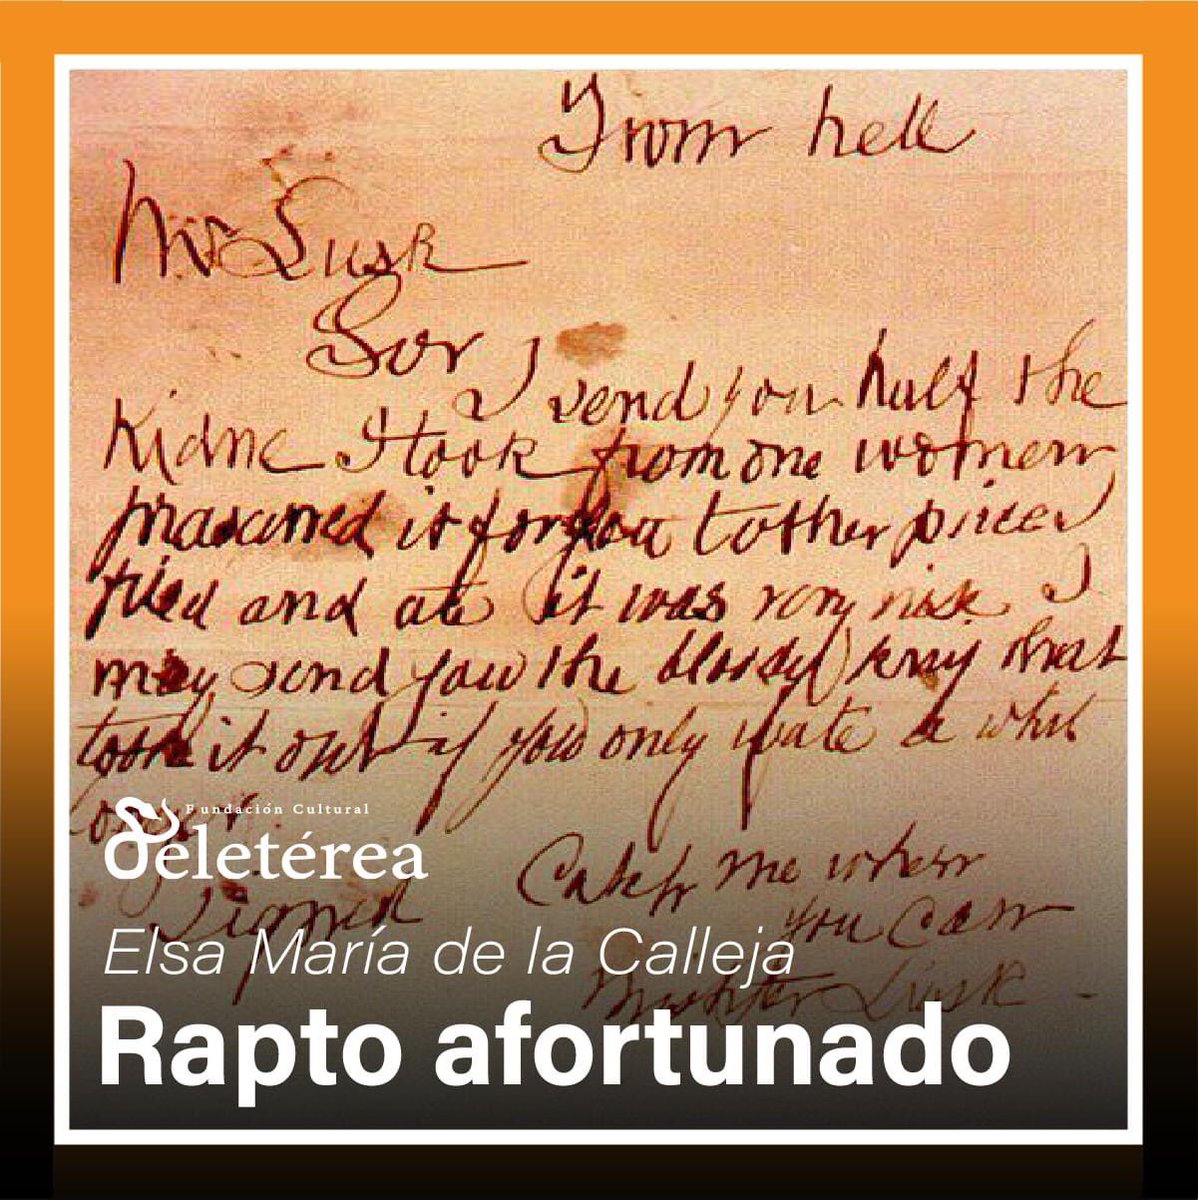 From hell
Mr Lusk
Sor
I send you half the
Kidne I took from one women
prasarved it for you tother piece I
fried and ate it was very nise I
may send you the bloody knif that
took it out if you only wate a whil
longer
Fundación Cultural
deletérea
signed
Catch me when
you can
Mishter Lusk
Elsa María de la Calleja
Rapto afortunado